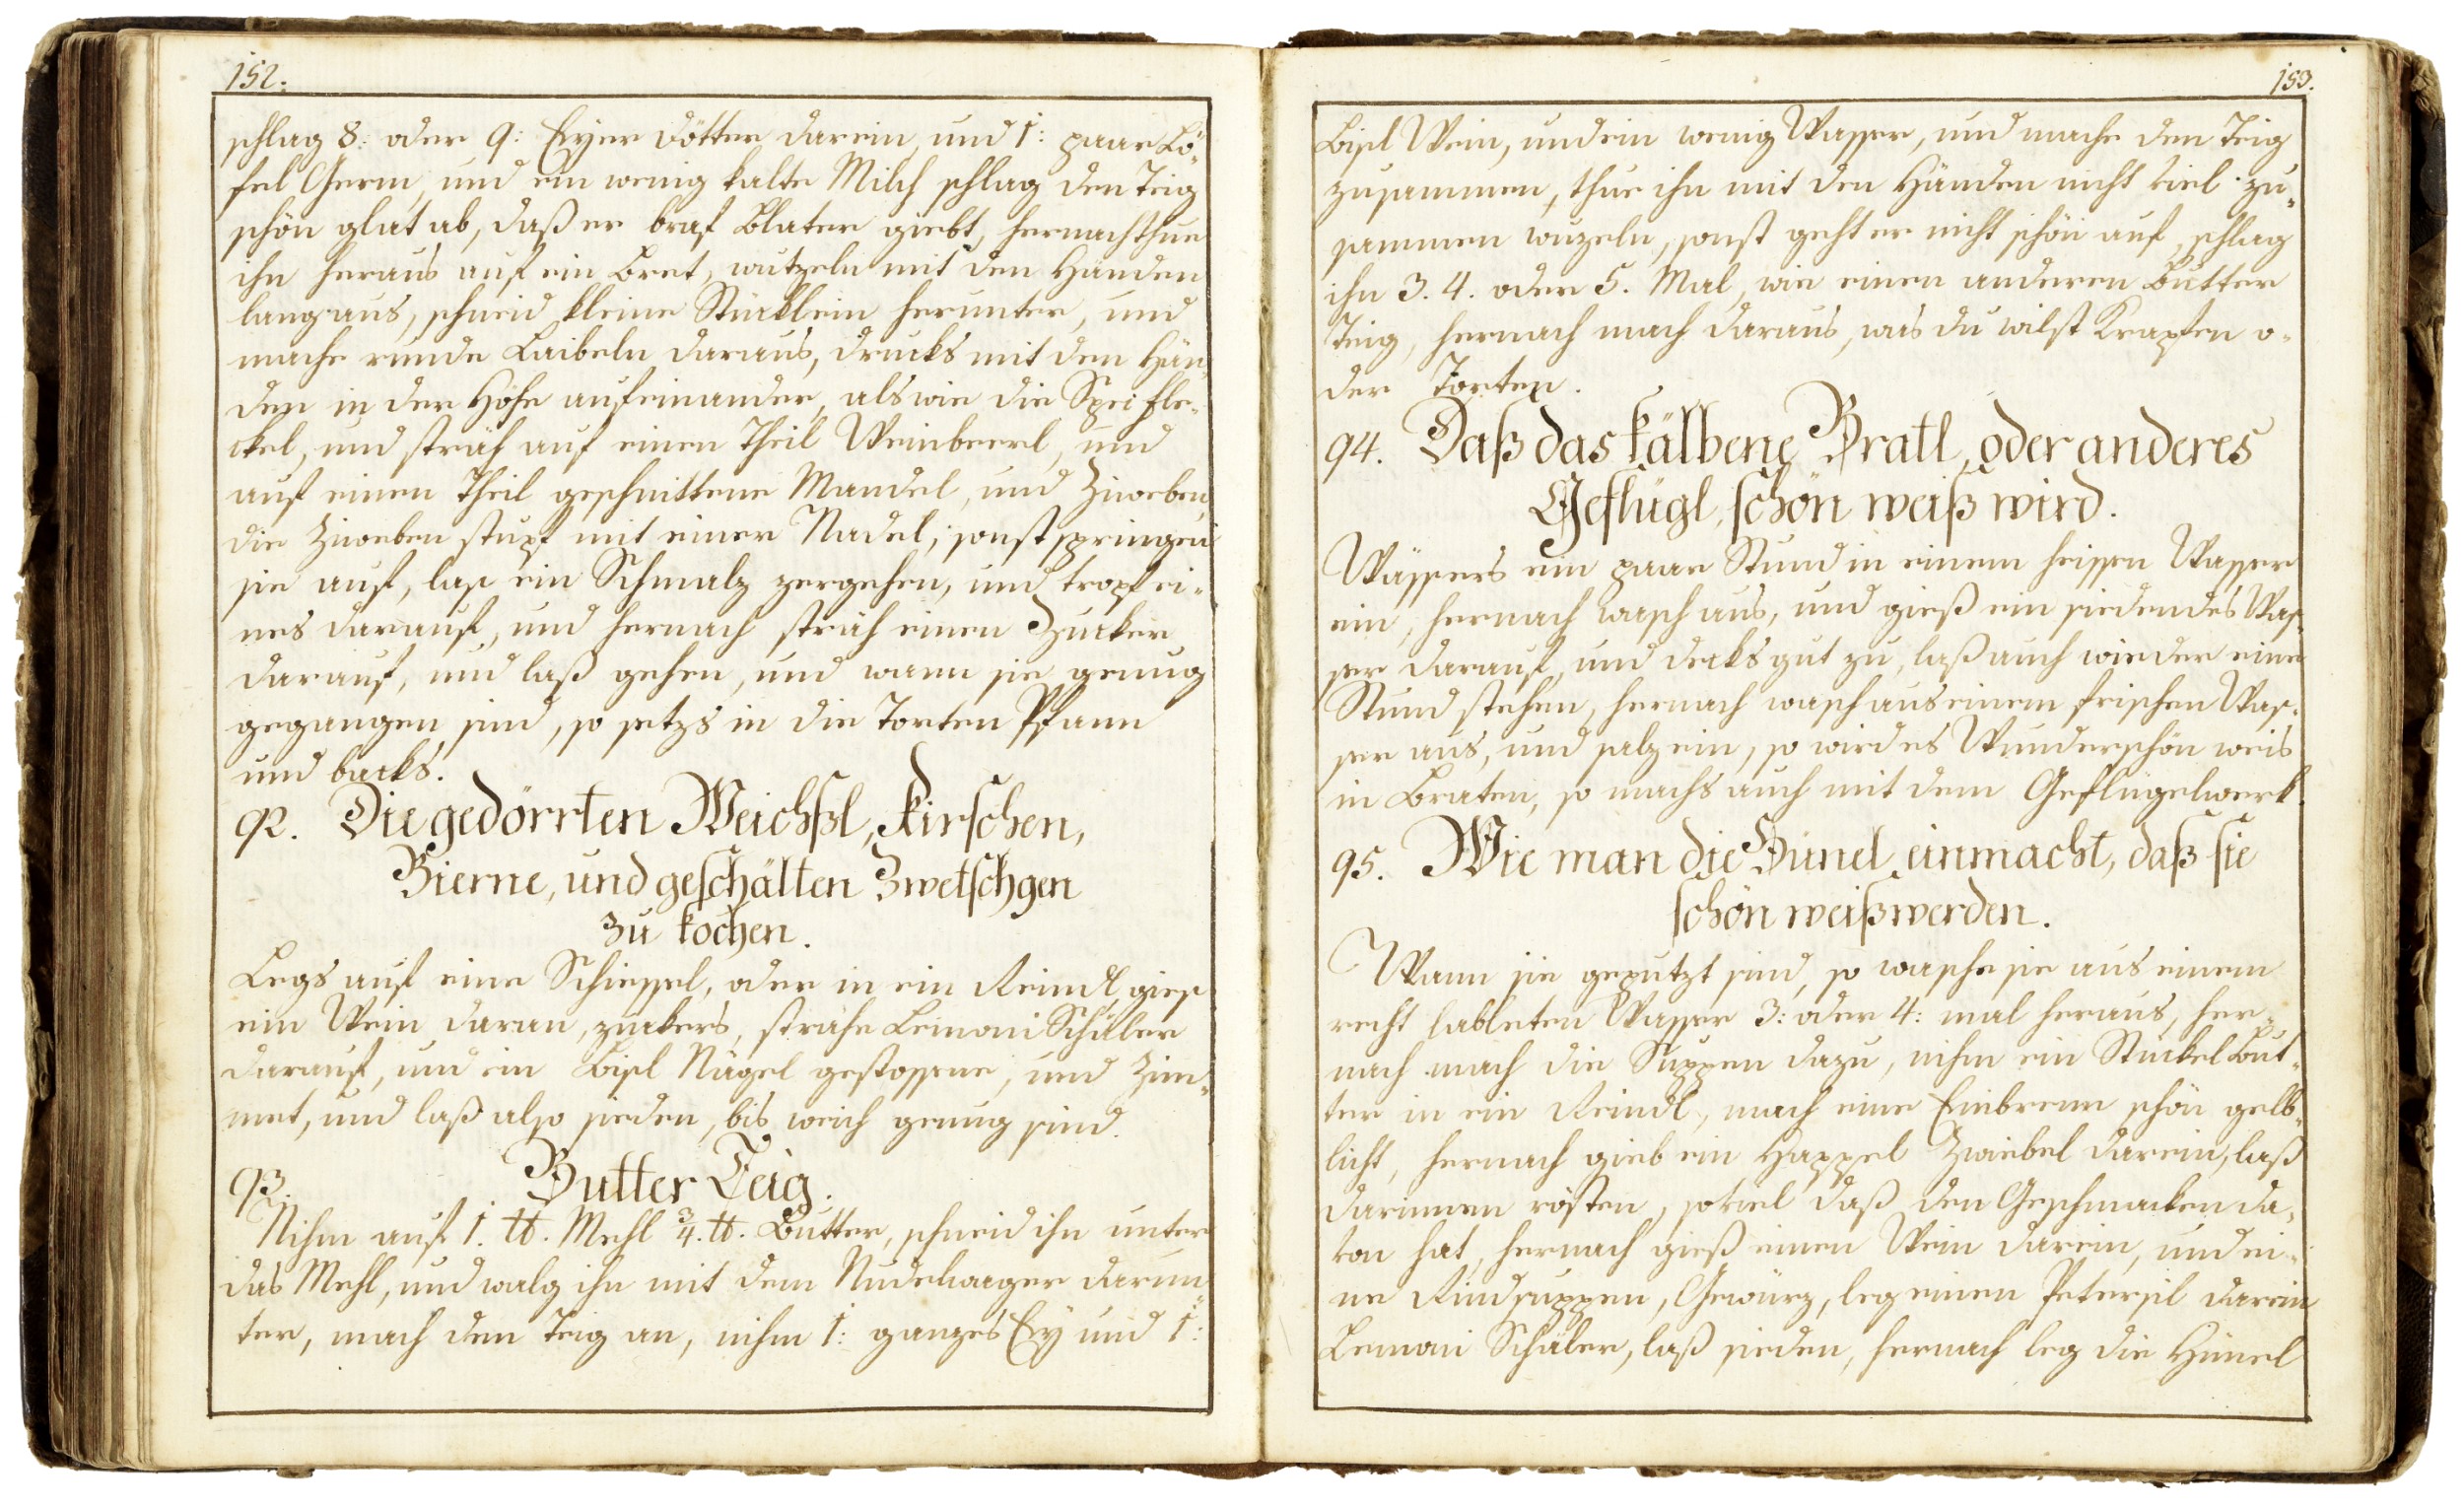 152.
schlag 8: oder 9: Eyer dötter darein, und 1: paar Lö-
fel Germ, und ein wenig kalte Milch schlag den Teig
schön glat ab, daß er braf Blater giebt, hernach thue
ihn heraus auf ein Bret, wutzeln mit den Händen
lang aus, schneid kleine Stücklein herunter, und
mache runde Laibeln daraus, drucks mit den Hän-
den in der Höhe aufeinander, als wie die Speifle-
ckel, und sträh auf einen Theil Weinbeerl, und
auf einen Theil geschnittene Mandel, und Ziweben,
die Ziweben stupf mit einer Nadel, sonst springen
sie auf, lass ein Schmalz zergehen, und tropf ei-
nes darauf, und hernach sträh einen Zucker
darauf, und laß gehen, und wann sie genug
gegangen sind, so setzs in die Torten Pfann
und backs.
92. Die gedörrten Weichßl, Kirschen,
Bierne, und geschälten Zwetschgen
zu kochen.
Legs auf eine Schiessel, oder in ein Reindl, gies
ein Wein daran, zuckers, strähe Lemoni Schäller
darauf, und ein Bisl Nägel gestossene, und Zim-
met, und laß also sieden, bis weich genug sind.
93. Butter Teig.
Nihm auf 1. ℔. Mehl 3/4. ℔. Butter, schneid ihn unter
das Mehl, und walg ihn mit dem Nudelwager darun-
ter, mach den Teig an, nihm 1: ganzes Ey und 1:
153.
Bisl Wein, und ein wenig Wasser, und mache den Teig
zusammen, thue ihn mit den Händen nicht viel zu-
sammen wuzeln, sonst geht er nicht schön auf, schlag
ihn 3. 4. oder 5. Mal, wie einen anderen Butter
Teig, hernach mach daraus, was du wilst Krapfen o-
der Torten.
94. Daß das kälbene Bratl, oder anderes
Geflügl, schön weiß wird.
Wässers ein paar Stund in einem heissen Wasser
ein, hernach wasch aus, und gieß ein siedendes Was-
ser darauf, und decks gut zu, laß auch wieder eine
Stund stehen, hernach wasch aus einem frischen Was-
ser aus, und salz ein, so wird es Wunderschön weis
in Braten, so machs auch mit dem Geflügelwerk.
95. Wie man die Hünel einmacht, daß sie
schön weiß werden.
Wann sie geputzt sind, so wasche sie aus einem
recht lableten Wasser 3: oder 4: mal heraus, her-
nach mach die Suppen dazu, nihm ein Stückel But-
ter in ein Reindl, mach eine Einbrenn schön gelb-
licht, hernach gieb ein Happel Zwiebel darein, laß
darinnen rösten, so viel daß den Geschmacken da-
von hat, hernach gieß einen Wein darein, und ei-
ne Rindsuppen, Gewürz, leg einen Petersil darein
Lemoni Schäler, laß sieden, hernach leg die Hünel